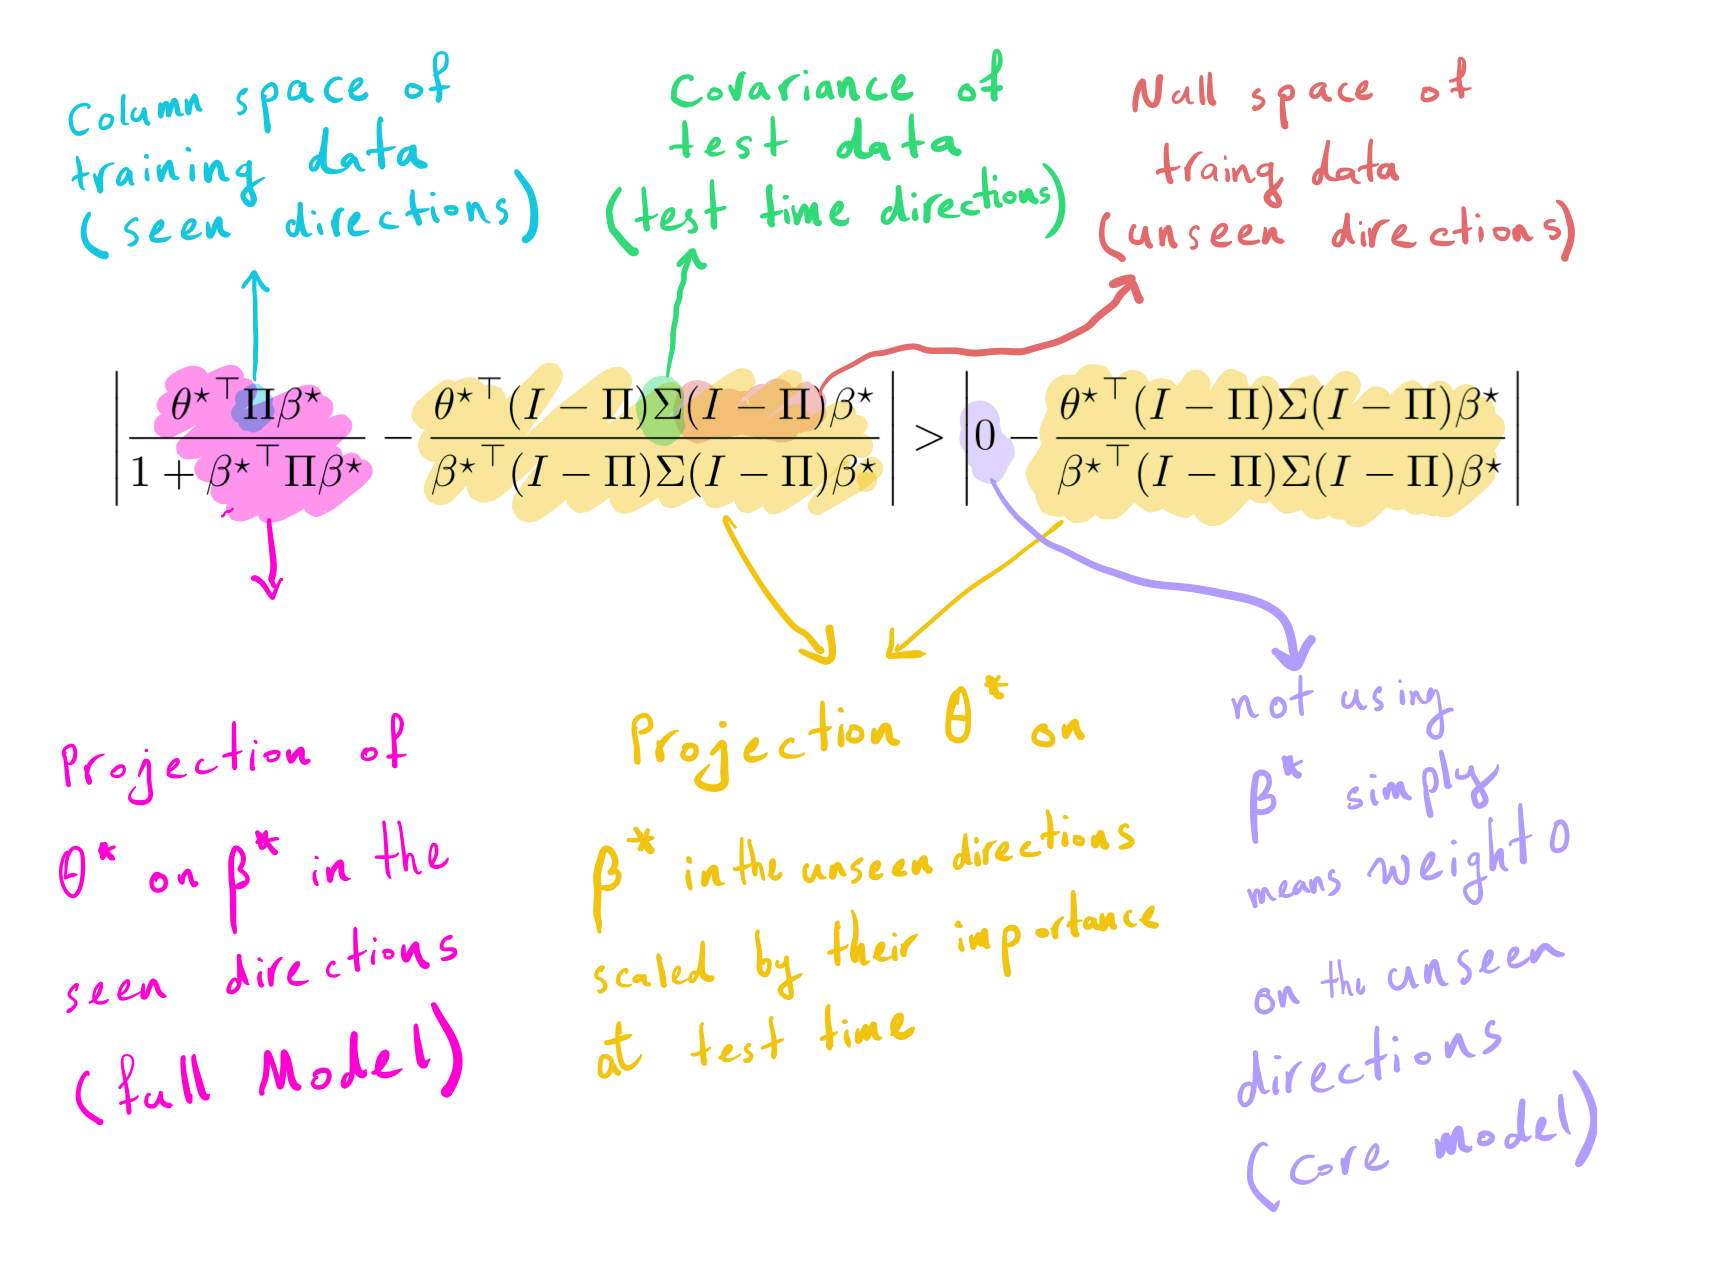 Column space of
training data
(seen directions)
Covariance of
test data
(test time directions)
Null space of
traing data
(unseen directions)
|θ⋆⊤Πβ⋆ / (1 + β⋆⊤Πβ⋆) − θ⋆⊤(I − Π)Σ(I − Π)β⋆ / β⋆⊤(I − Π)Σ(I − Π)β⋆| > |0 − θ⋆⊤(I − Π)Σ(I − Π)β⋆ / β⋆⊤(I − Π)Σ(I − Π)β⋆|
Projection of
θ* on β* in the
seen directions
(full Model)
Projection θ* on
β* in the unseen directions
scaled by their importance
at test time
not using
β* simply
means weight 0
on the unseen
directions
(core model)